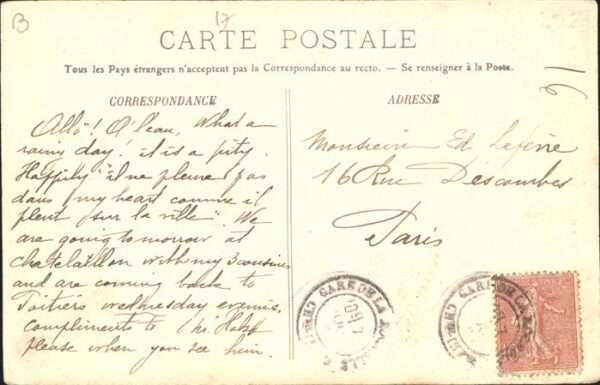 B
17
CARTE POSTALE
Tous les Pays étrangers n'acceptent pas la Correspondance au recto. — Se renseigner à la Poste.
CORRESPONDANCE
ADRESSE
Allô! O l'eau, What a
rainy day! it is a pity.
Happily "il ne pleure pas
dans my heart comme il
pleut sur la ville" We
are going tomorrow at
Chatelaillon with my 3 cousins
and are coming back to
Poitiers wednesday evening.
Compliments to
please when you see him.
Monsieur Ed. Lefèvre
16 Rue Descombes
Paris
GARE DE LA
GARE DE LA